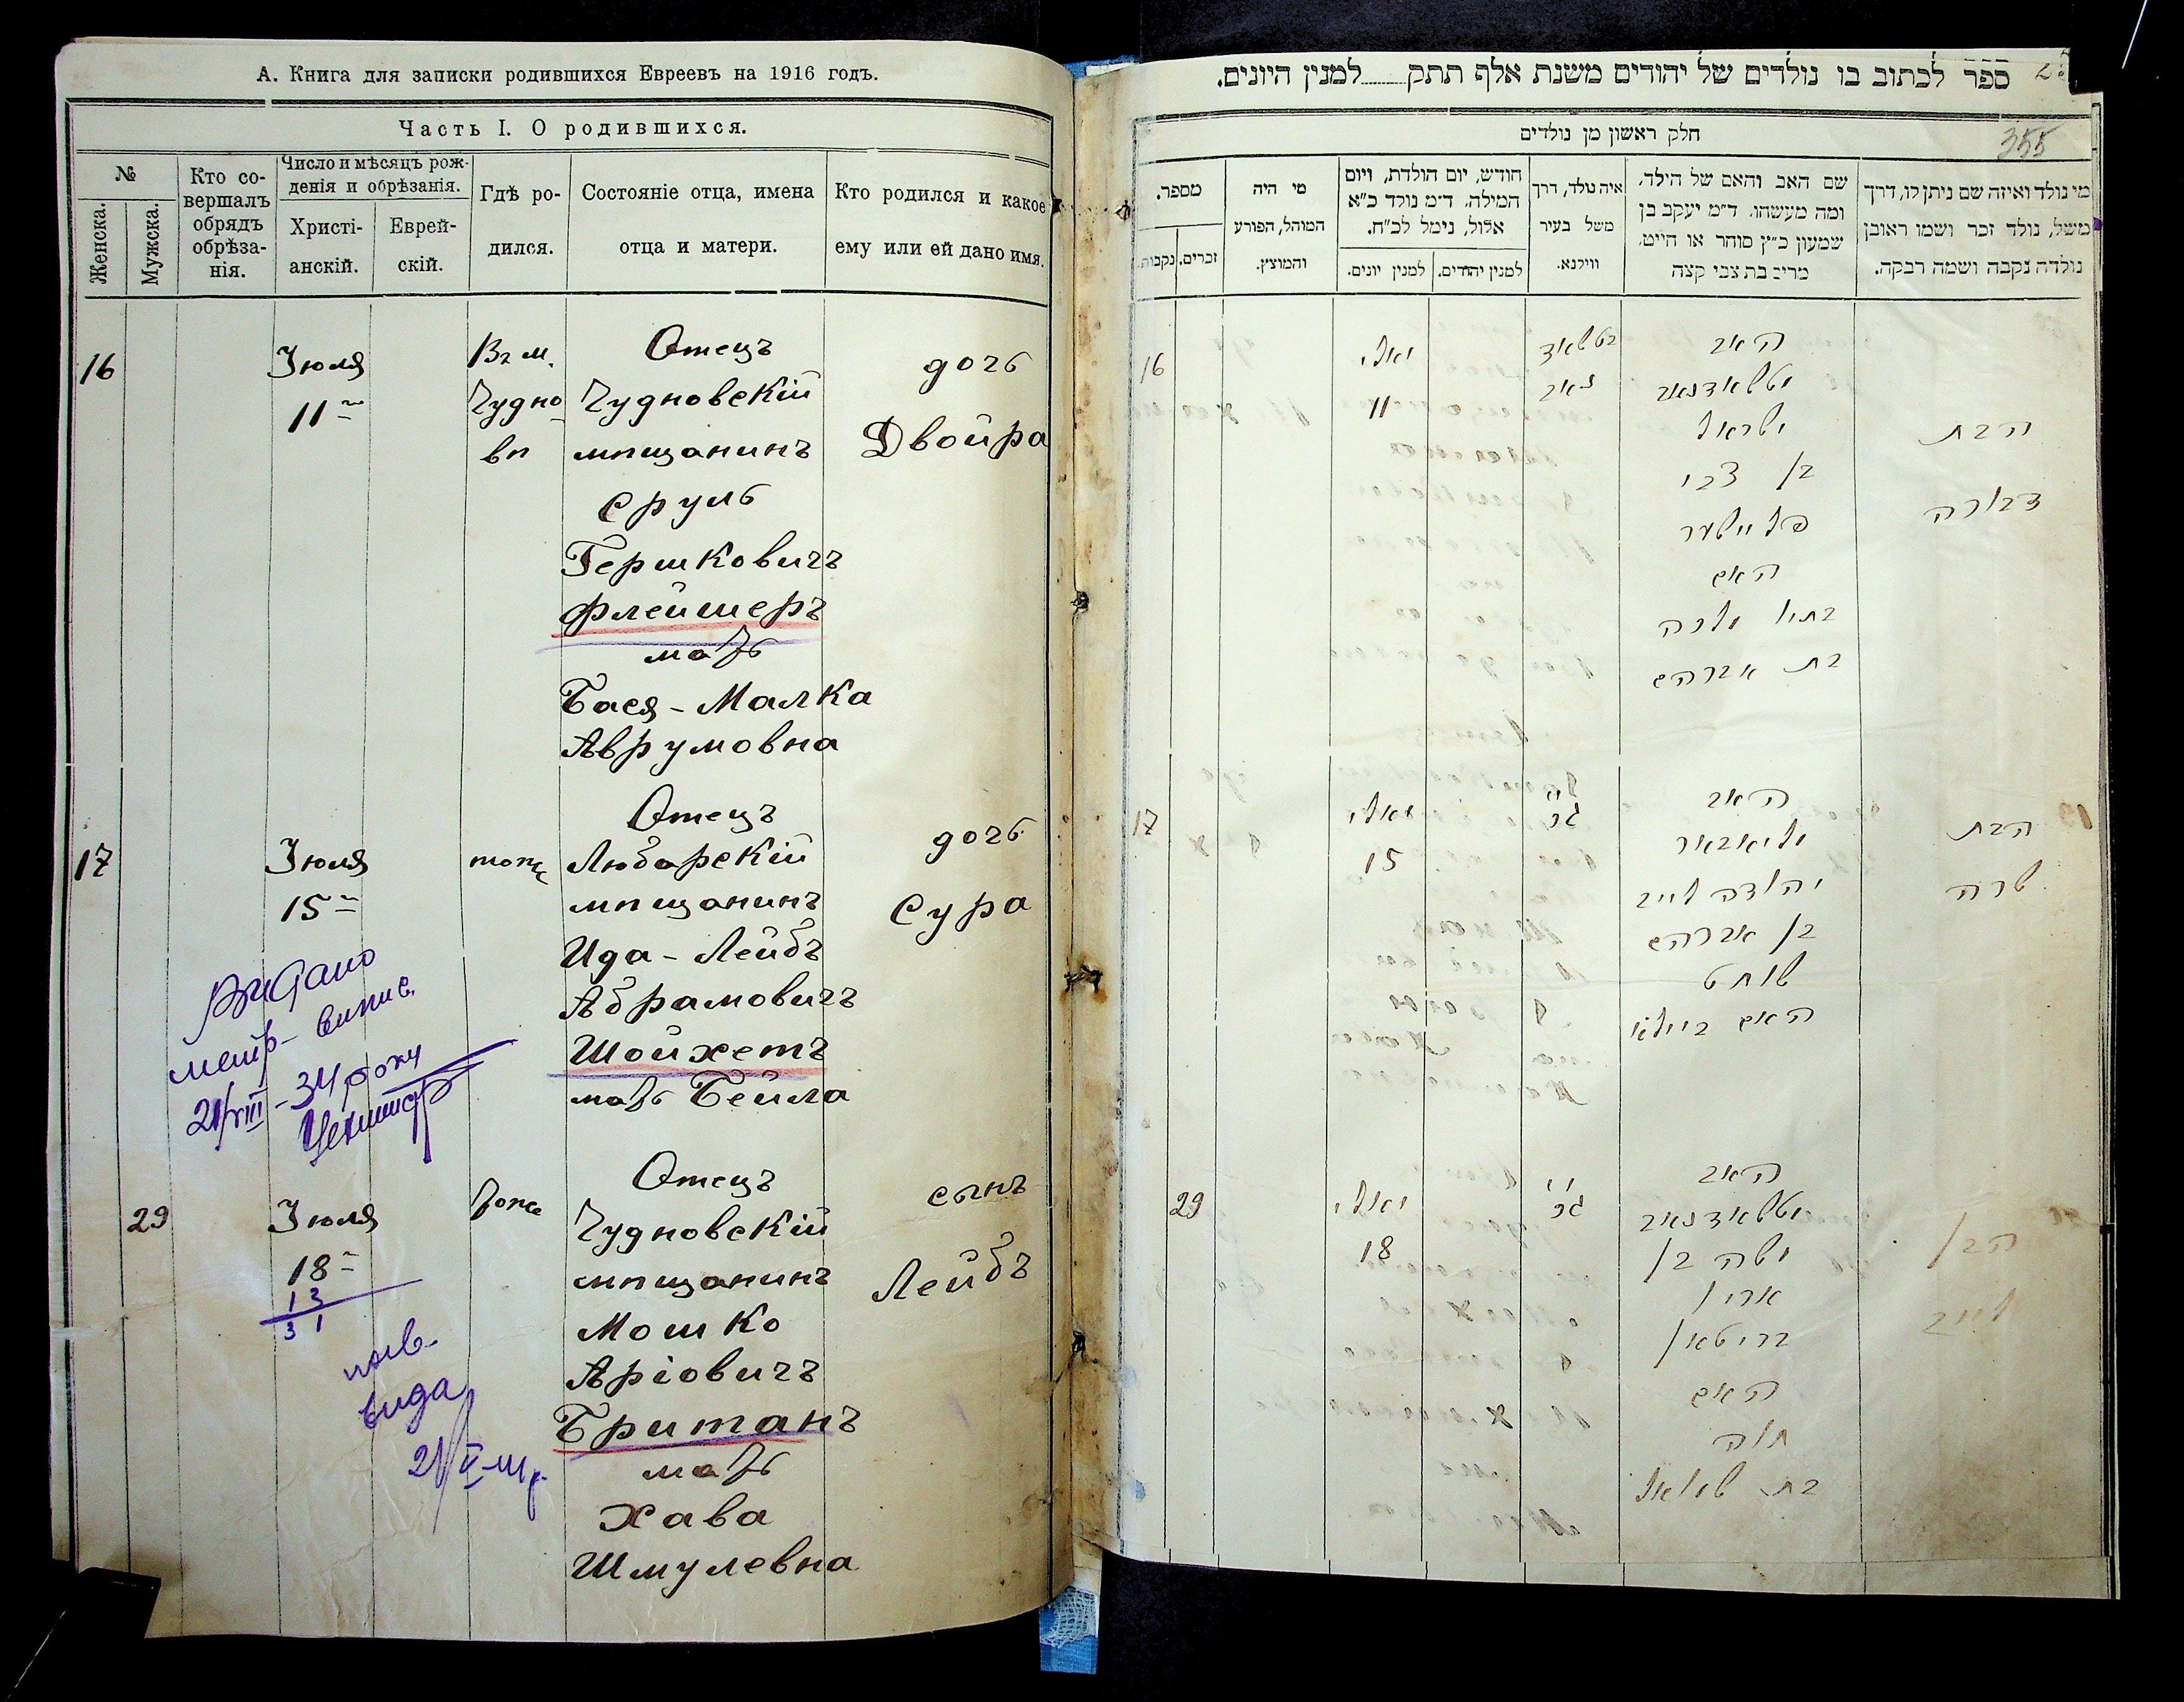 А. Книга для записки родившихся Евреевъ на 1916 годъ.
Часть I. О родившихся.
№
Женска.
Мужска.
Кто со-
вершалъ
обрядъ
обрѣза-
нія.
Число и мѣсяцъ рож-
денія и обрѣзанія.
Христі-
анскій.
Еврей-
скій.
Гдѣ ро-
дился.
Состояніе отца, имена
отца и матери.
Кто родился и какое
ему или ей дано имя.
16
Іюля
11
Въ м.
Чудно
вѣ
Отецъ
Чудновскій
мѣщанинъ
Сруль
Гершковичъ
Флейшеръ
мать
Бася-Малка
Аврумовна
дочь
Двойра
17
Іюля
15
тоже
Отецъ
Любарскій
мѣщанинъ
Ида-Лейбъ
Абрамовичъ
Шойхетъ
мать Бейла
дочь
Сура
Видано
метр- випис.
21/VIII-34 року
29
Іюля
18
13
31
тоже
Отецъ
Чудновскій
мѣщанинъ
Мошко
Аріовичъ
Британъ
мать
Хава
Шмулевна
сынъ
Лейбъ
вида
ספר לכתוב בו נולדים של יהודים משנת אלף תתק למנין היונים.
355
חלק ראשון מן נולדים
מספר.
נקבות.
זכרים.
מי היה
המוהל, הפורע
והמוצץ.
חודש, יום הולדת, ויום
המילה. ד״מ נולד כ״א
אלול, נימל לכ״ח.
למנין יונים.
למנין יהודים.
איה נולד, דרך
משל בעיר
ווילנא.
שם האב והאם של הילד,
ומה מעשהו. ד״מ יעקב בן
שמעון כ״ץ סוחר או חייט,
מרים בת צבי קצה
מי נולד ואיזה שם ניתן לו, דרך
משל, נולד זכר ושמו ראובן
נולדה נקבה ושמה רבקה.
16
יאלי
11
האב
ישראל
בן צבי
פליישער
האם
בת אברהם
הבת
דבורה
17
יאלי
15
האב
יהודה לייב
בן אברהם
שוחט
האם ביילא
הבת
שרה
29
יאלי
18
האב
משה בן
ארי
בריטאן
האם
חוה
בת שמואל
הבן
לייב